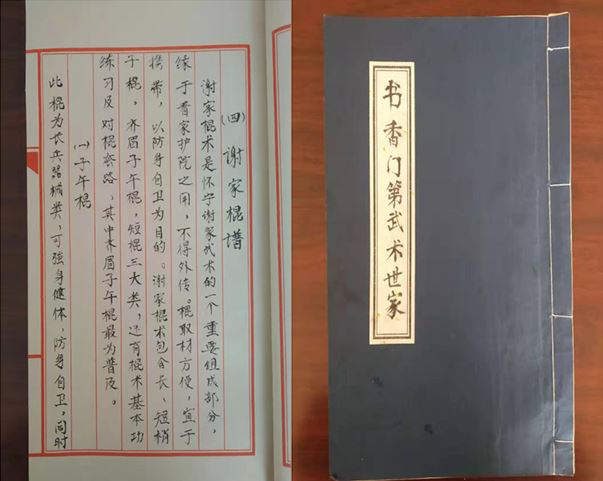 (四)谢家棍谱
谢家棍术是怀宁谢家武术的一个重要组成部分，
缘于看家护院之用，不得外传。棍取材方便，宜于
携带，以防身自卫为目的。谢家棍术包含长、短梢
子棍，齐眉子午棍，短棍三大类，还有棍术基本功
练习及对棍套路，其中齐眉子午棍最为普及。
(一)子午棍
此棍为长兵器械类，可强身健体，防身自卫，同时
书香门第武术世家